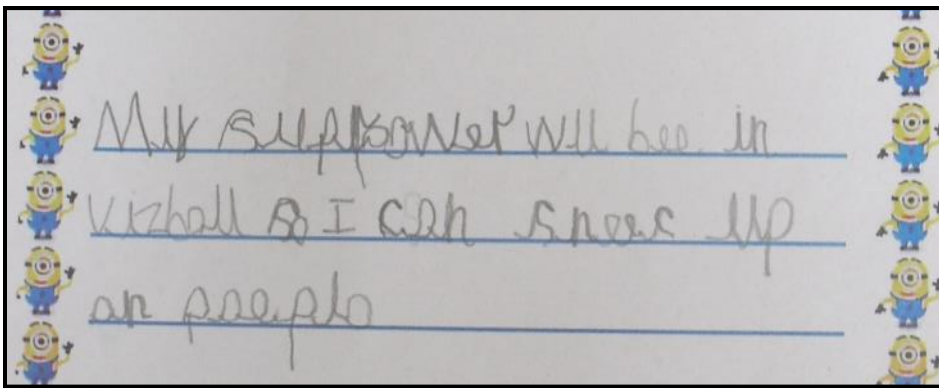 My suppower will bee in
vizball so I can sneec up
on peeple